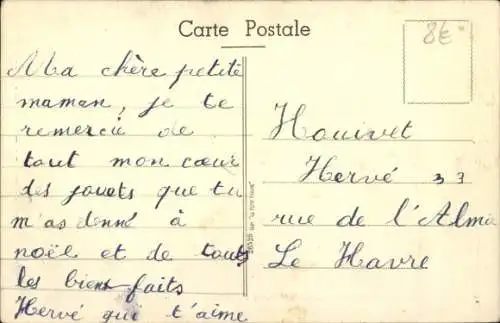 Carte Postale
8€
Ma chère petite
maman, je te
remercie de
tout mon cœur
des jouets que tu
m'as donné à
noël et de touts
les bienfaits
Hervé qui t'aime
Houivet
Hervé 33
rue de l'Alma
Le Havre